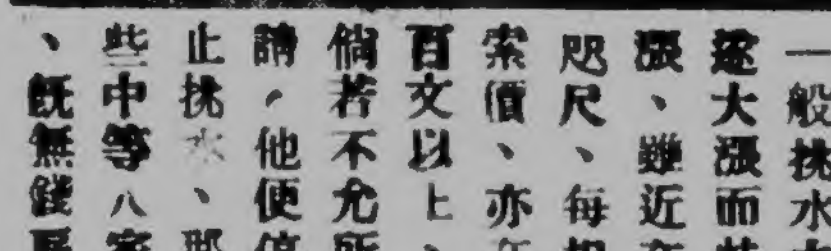 一般挑水
遂大漲而
漲、雖近
咫尺、每担
索價、亦在
百文以上、
倘若不允所
請，他便停
止挑水、那
些中等人家
、旣無錢雇